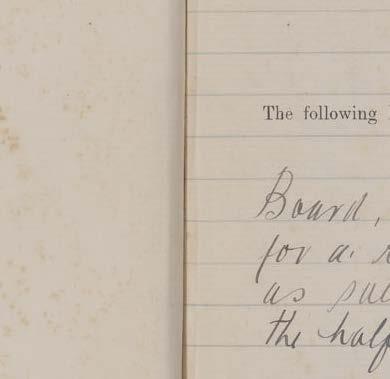 The following
Board,
for a
as
the half